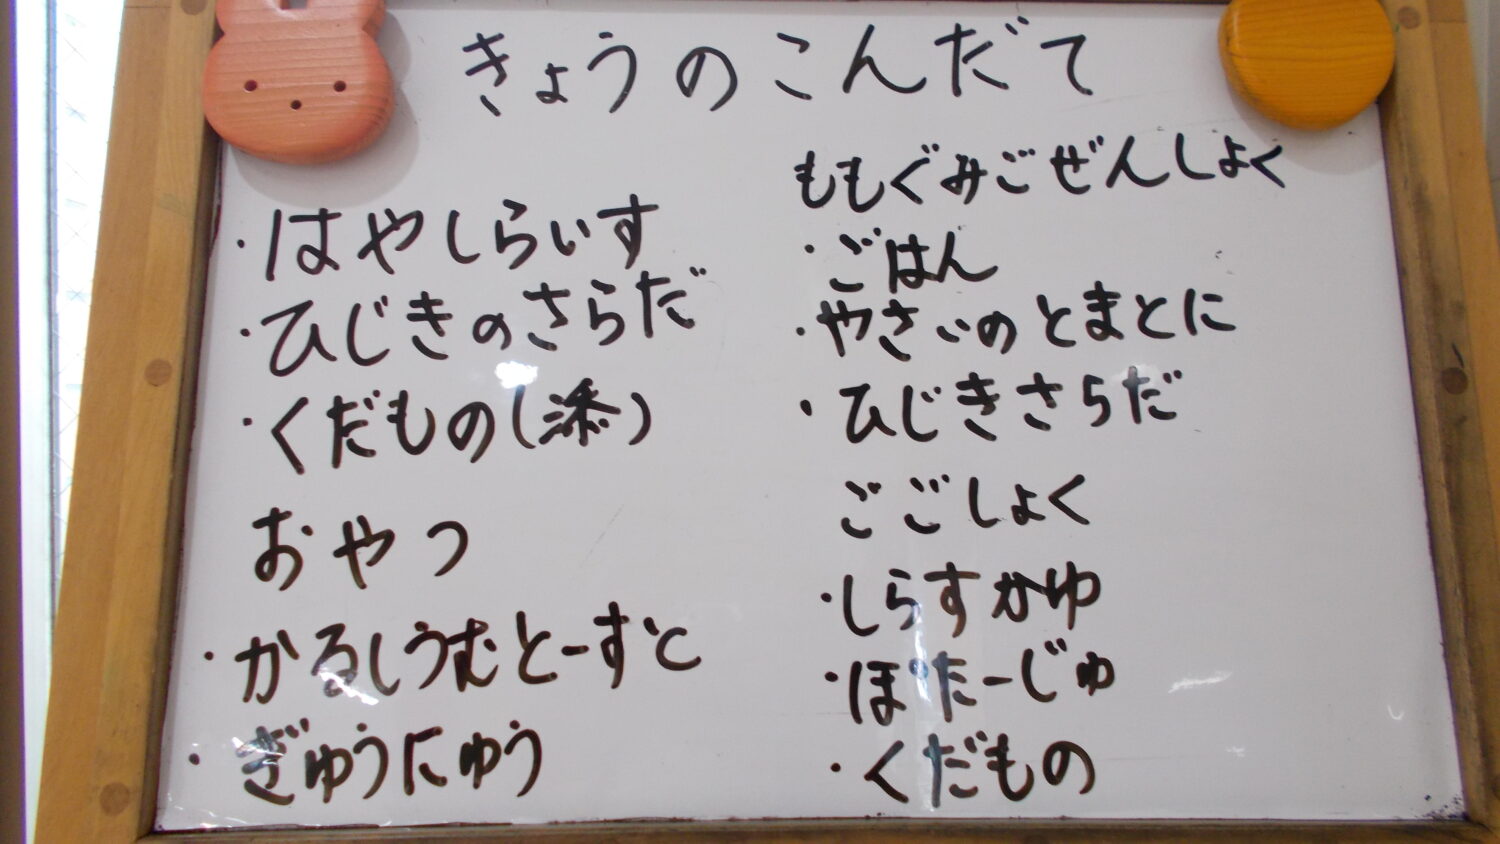 きょうのこんだて
・はやしらいす
・ひじきのさらだ
・くだもの(添)
おやつ
・かるしうむとーすと
・ぎゅうにゅう
ももぐみごぜんしょく
・ごはん
・やさいのとまとに
・ひじきさらだ
ごごしょく
・しらすかゆ
・ぽたーじゅ
・くだもの